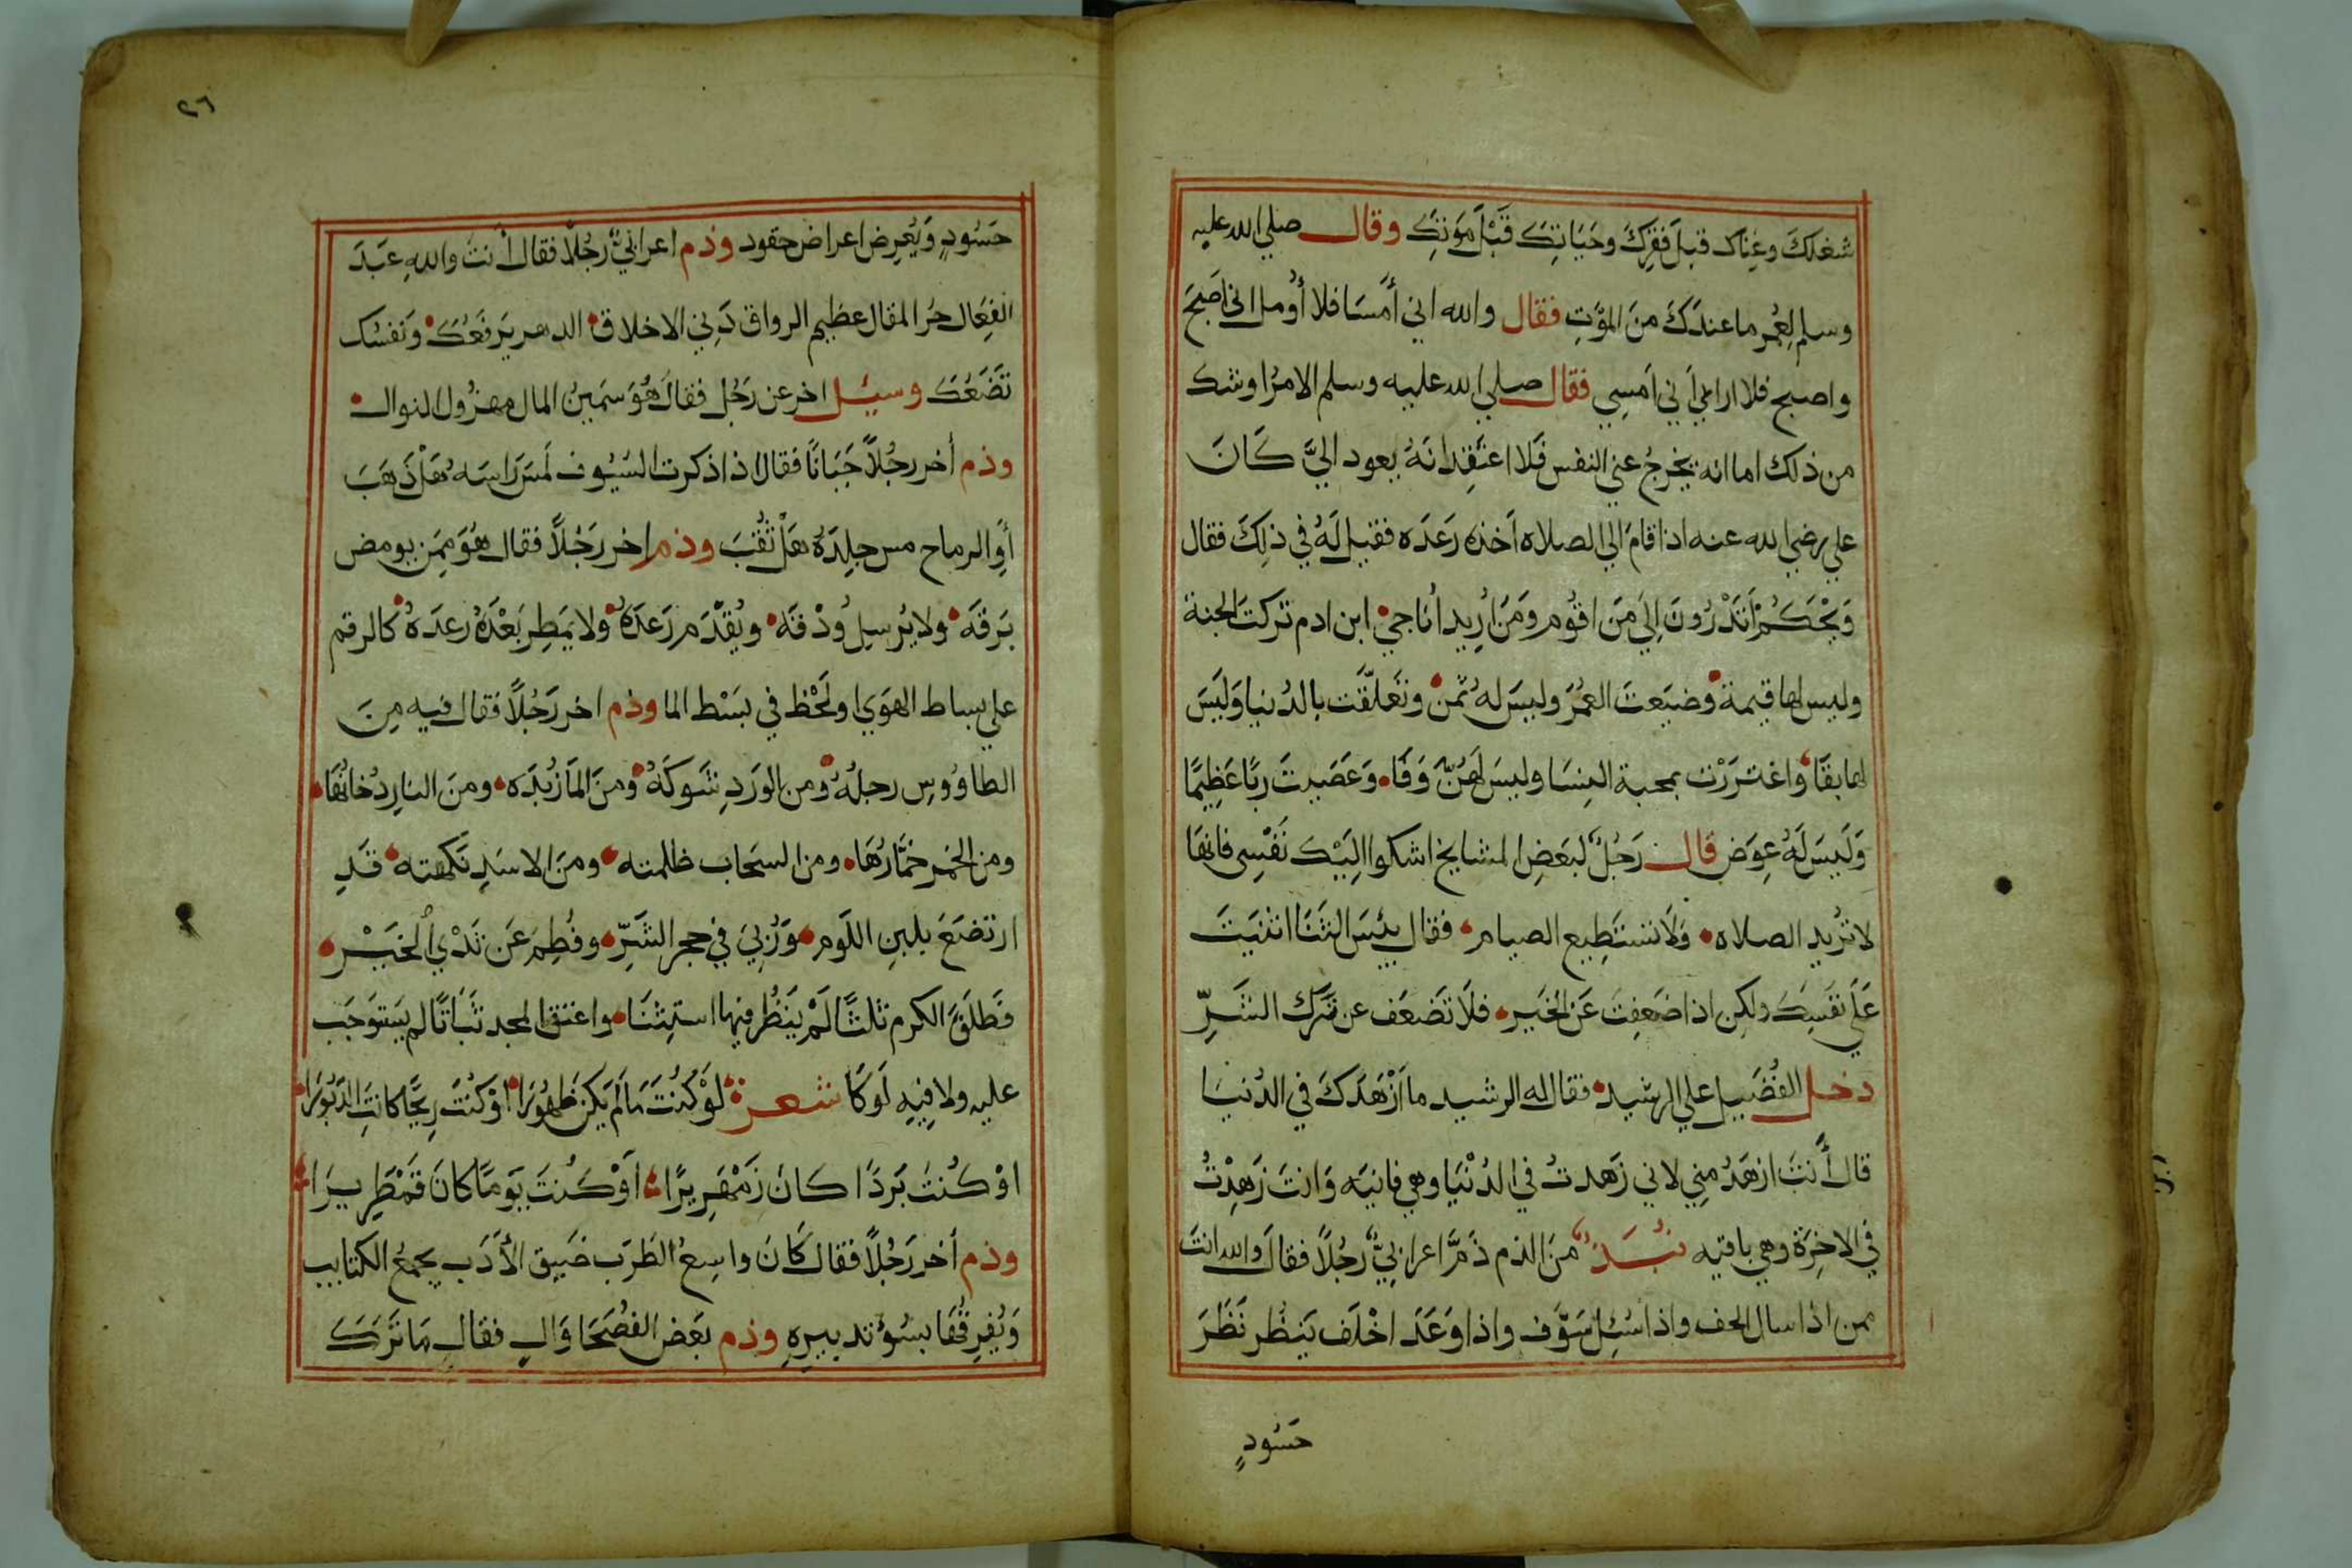 شغلك وغناك قبل فقرك وحياتك قبل موتك وقال صلي الله عليه
وسلم لعمر ما عندك من الموت فقال والله اني أمسا فلا أومل اني اصبح
واصبح فلا اراني أني امسي فقال صلي الله عليه وسلم الامر اوشك
من ذلك اما انه يخرج عني النفس فلا اعتقد انه يعود الي كان
علي رضي الله عنه اذا قام الي الصلاه اخذه رعده فقيل له في ذلك فقال
ويحكم أتدرون الي من اقوم ومن أريد أناجي ابن ادم تركت الجنة
وليس لها قيمة وضيعت العمر وليس له ثمن وتعلقت بالدنيا وليس
لها بقا واغتررت بمحبة النسا وليس لهن وفا وعصيت ربا عظيما
وليس له عوض قال رجل لبعض المشايخ اشكوا اليك نفسي فانها
لا تريد الصلاه ولا تستطيع الصيام فقال بئس الثنا اثنيت
علي نفسك ولكن اذا ضعفت عن الخير فلا تضعف عن ترك الشر
دخل الفضيل علي الرشيد فقال له الرشيد ما أزهدك في الدنيا
قال أنت ازهد مني لاني زهدت في الدنيا وهي فانيه وانت زهدت
في الاخرة وهي باقيه نبذ من الذم ذم اعرابي رجلا فقال والله انت
ممن اذا سال الحف واذا سئل سوف واذا وعد اخلف ينظر نظر
حسود
٢٦
حسود ويعرض اعراض حقود وذم اعرابي رجلا فقال أنت والله عبد
الفعال حر المقال عظيم الرواق دني الاخلاق الدهر يرفعك ونفسك
تضعك وسئل اخر عن رجل فقال هو سمين المال مهزول النوال
وذم أخر رجلا جبانا فقال اذا ذكرت السيوف لمس راسه هل ذهب
أو الرماح مس جلده هل ثقب وذم اخر رجلا فقال هو ممن يومض
برقه ولا يرسل ودقه ويقدم رعده ولا يمطر بعده رعده كالرقم
علي بساط الهوي او لحظ في بسط الما وذم اخر رجلا فقال فيه من
الطاووس رجله ومن الورد شوكه ومن الما زبده ومن النار دخانها
ومن الخمر خمارها ومن السحاب ظلمته ومن الاسد نكهته قد
ارتضع بلبن اللوم وربي في حجر الشر وفطم عن ثدي الخير
فطلق الكرم ثلثا لم ينظر فيها استثنا واعتق المجد ثباتا لم يستوجب
عليه ولا فيه لوكا شعر لو كنت ما لم يكن طهورا او كنت ريحا كانت الدبورا
او كنت بردا كان زمهريرا أو كنت يوما كان قمطريرا
وذم أخر رجلا فقال كان واسع الطرب ضيق الأدب يجمع الكتايب
ويفرقها بسؤ تدبيره وذم بعض الفصحا وال فقال ما ترك